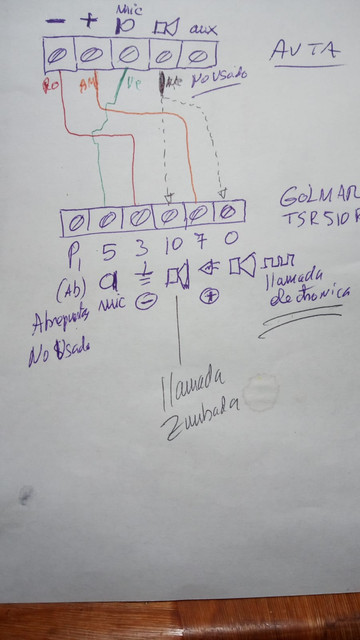 - + mic aux
AUTA
RO AM Ve Ne No Usado
GOLMAR
TSR510R
P1 5 3 10 7 0
(Ab) mic - +
Abrepuertas
No Usado
llamada
electronica
llamada
Zumbada